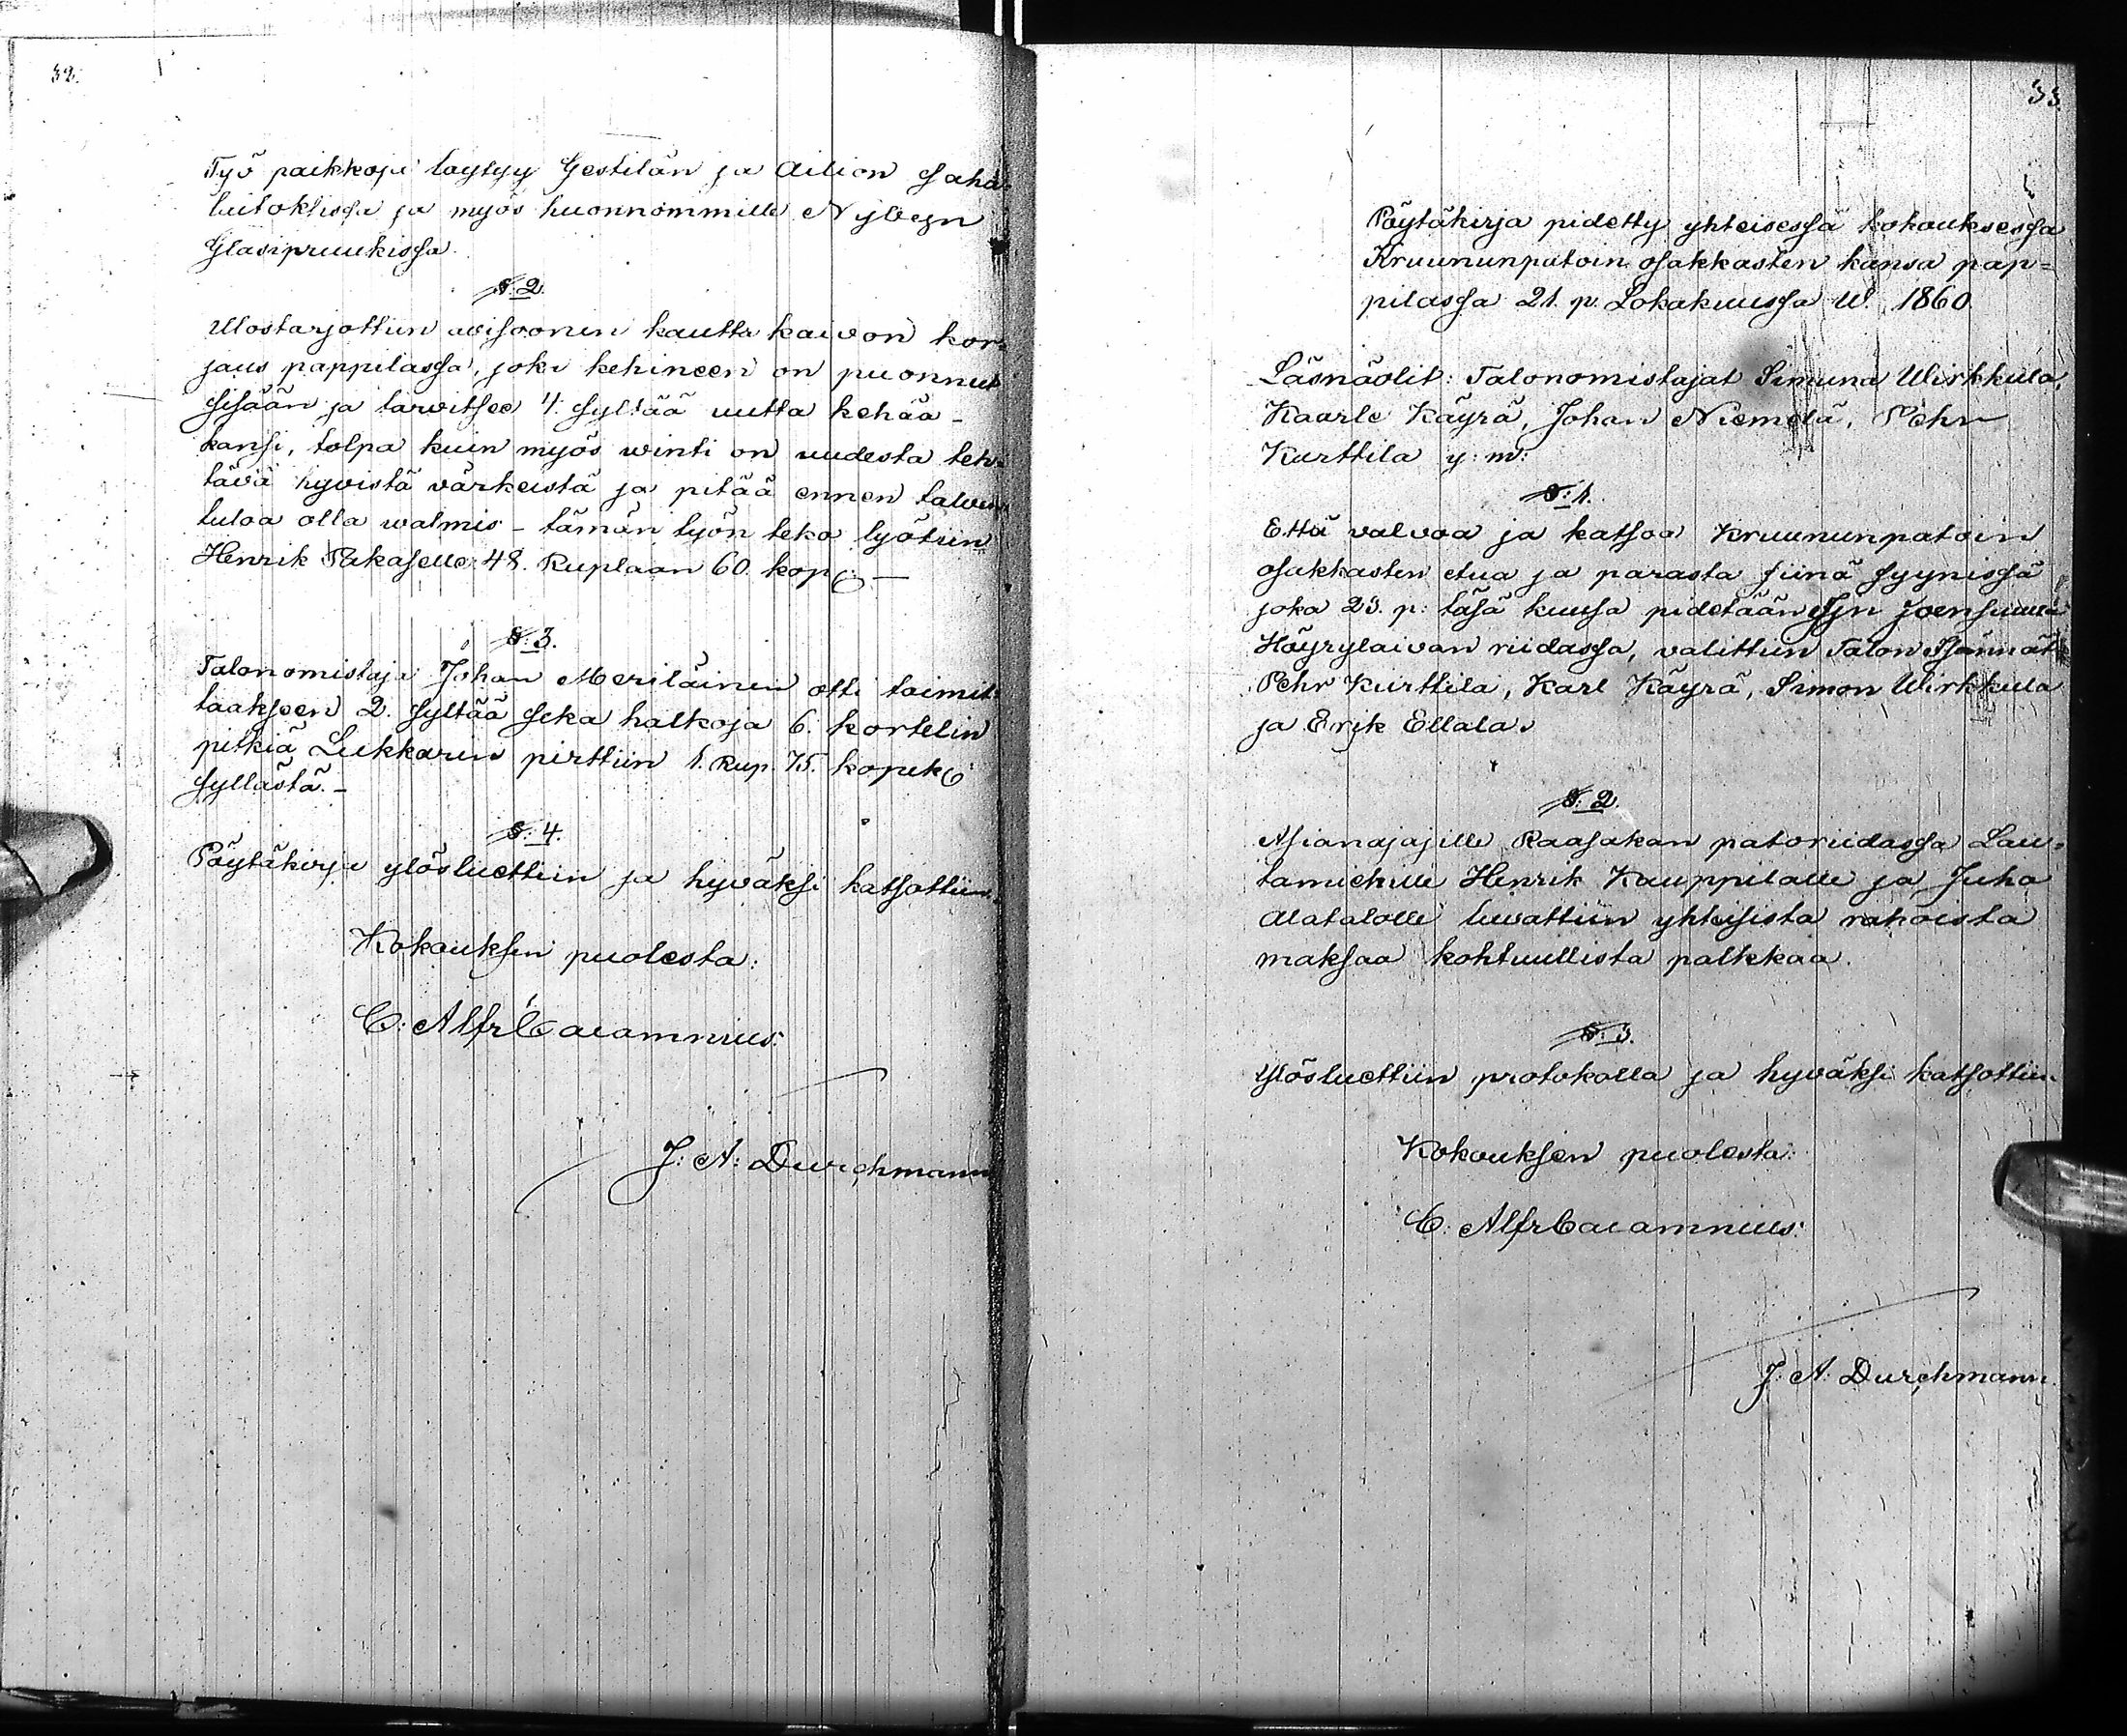 32.
Työ paikkoja löytyy Gestilän ja Ailion Saha
laitoksissa ja myös huonnommille Nybyn
Glasipruukissa.
§: 2.
Ulostarjottiin auksoonin kautta kaivon kor=
jaus pappilassa, joka kehineen on puonnut
sisään ja tarvitsee 4. syltää uutta kehää –
kansi, tolpa kuin myös vinti on uudesta teh=
tävä hyvistä värkeistä ja pitää ennen talven
tuloa olla walmis – tämän työn teko lyötiin
Henrik Takaselle 48. Ruplaan 60. kop. –
§: 3.
Talonomistaja Johan Meriläinen otti toimit=
taaksen 2. syltää seka halkoja 6. kortelin
pitkiä Lukkarin pirttiin 1. Rup. 75. kopek
syllästä. –
§: 4.
Pöytäkirja ylösluettiin ja hyväksi katsottiin.
Kokouksen puolesta:
C: Alfr Cajamnius:
J: A: Durchmann
33.
Pöytäkirja pidetty yhteisessä kokouksessa
Kruununpatoin osakkasten kansa pap=
pilassa 21. p. Lokakuussa W. 1860.
Läsnäolit: Talonomistajat Simuna Wirkkula,
Kaarle Käyrä, Johan Niemelä, Pehr
Kurttila y: m:
§: 1.
Että valvoa ja katsoa Kruununpatoin
osakkasten etua ja parasta siinä syynissä
joka 23. p: täsä kuusa pidetään Ijn Joensuulla
Höyrylaivan riidassa, valittiin Talon Isännät
Pehr Kurttila, Karl Käyrä, Simon Wirkkula
ja Erik Ellala.
§: 2.
Asianajajille Raasakan patoriidassa Lau=
tamiehille Henrik Kauppilalle ja Juho
Alatalolle luvattiin yhteisistä rahoista
maksaa kohtuullista palkkaa.
§: 3.
Ylösluettiin protokolla ja hyväksi katsottiin.
Kokouksen puolesta:
C: Alfr Cajamnius:
J: A: Durchmann.